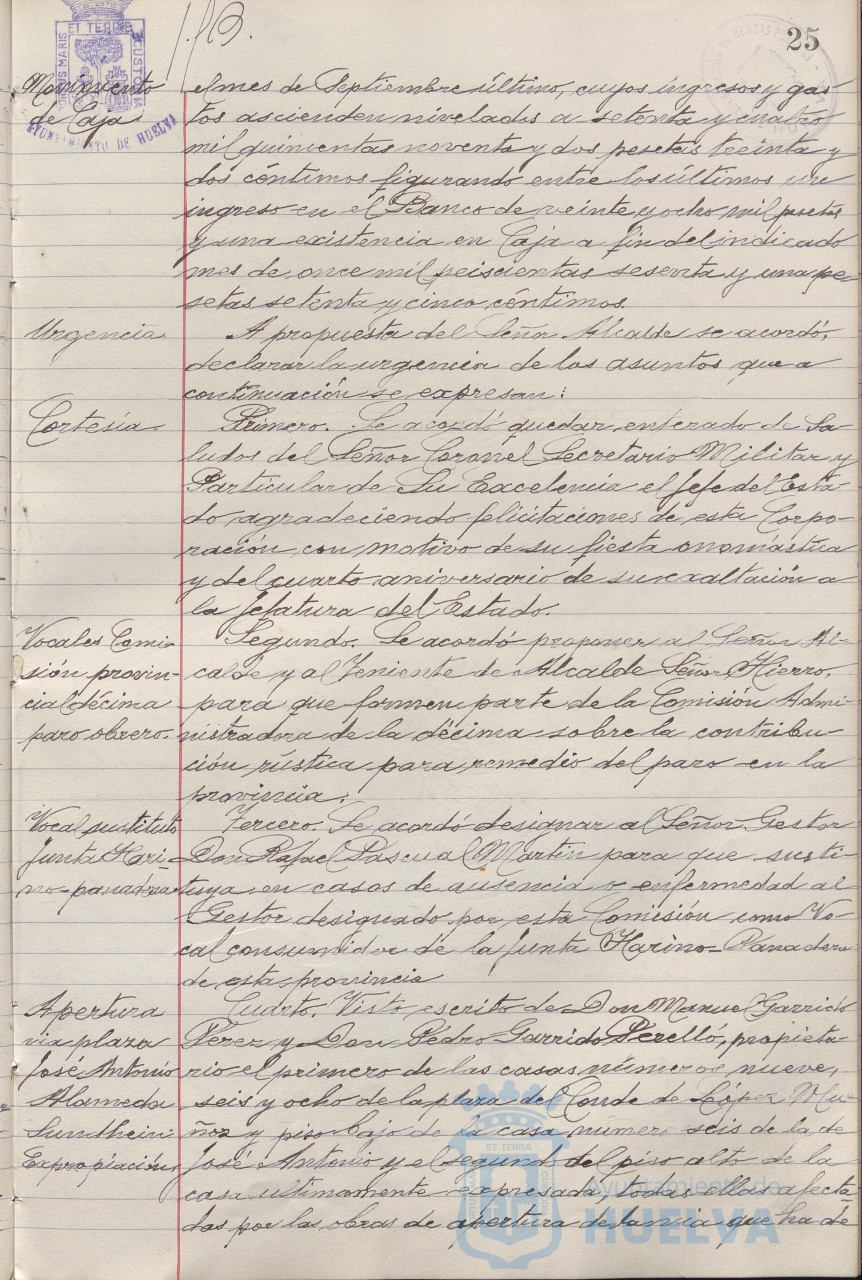 25
Movimiento
de Caja
PORTUS MARIS ET TERRÆ CUSTODIA
AYUNTAMIENTO DE HUELVA
el mes de Septiembre último, cuyos ingresos y gas-
tos ascienden nivelados a setenta y cuatro
mil quinientas noventa y dos pesetas treinta y
dos céntimos figurando entre los últimos un
ingreso en el Banco de veinte y ocho mil pesetas
y una existencia en Caja a fin del indicado
mes de once mil seiscientas sesenta y una pe-
setas setenta y cinco céntimos.
Urgencia
A propuesta del Señor Alcalde se acordó,
declarar la urgencia de los asuntos que a
continuación se expresan:
Cortesía
Primero. Se acordó quedar enterado de Sa-
ludos del Señor Coronel Secretario Militar y
Particular de Su Excelencia el Jefe del Esta-
do agradeciendo felicitaciones de esta Corpo-
ración con motivo de su fiesta onomástica
y del cuarto aniversario de su exaltación a
la jefatura del Estado.
Vocales Comi-
sión provin-
cial décima
paro obrero.
Segundo. Se acordó proponer al Señor Al-
calde y al Teniente de Alcalde Señor Hierro,
para que formen parte de la Comisión Admi-
nistradora de la décima sobre la contribu-
ción rústica para remedio del paro en la
provincia.
Vocal sustituto
Junta Hari-
no-panadera
Tercero. Se acordó designar al Señor Gestor
Don Rafael Pascual Martin para que susti-
tuya en casos de ausencia o enfermedad al
Gestor designado por esta Comisión como Vo-
cal consumidor de la Junta Harino-Panadera
de esta provincia
Apertura
via plaza
José Antonio
Alameda
Sundheim
Expropiación
Cuarto. Visto escrito de Don Manuel Garrido
Perez y Don Pedro Garrido Perelló, propieta-
rio el primero de las casas números nueve,
seis y ocho de la plaza del Conde de López Mu-
ñoz y piso bajo de la casa número seis de la de
José Antonio y el segundo del piso alto de la
casa ultimamente expresada, todas ellas afecta-
das por las obras de apertura de la via que ha de
ET TERRÆ
Ayuntamiento de
HUELVA